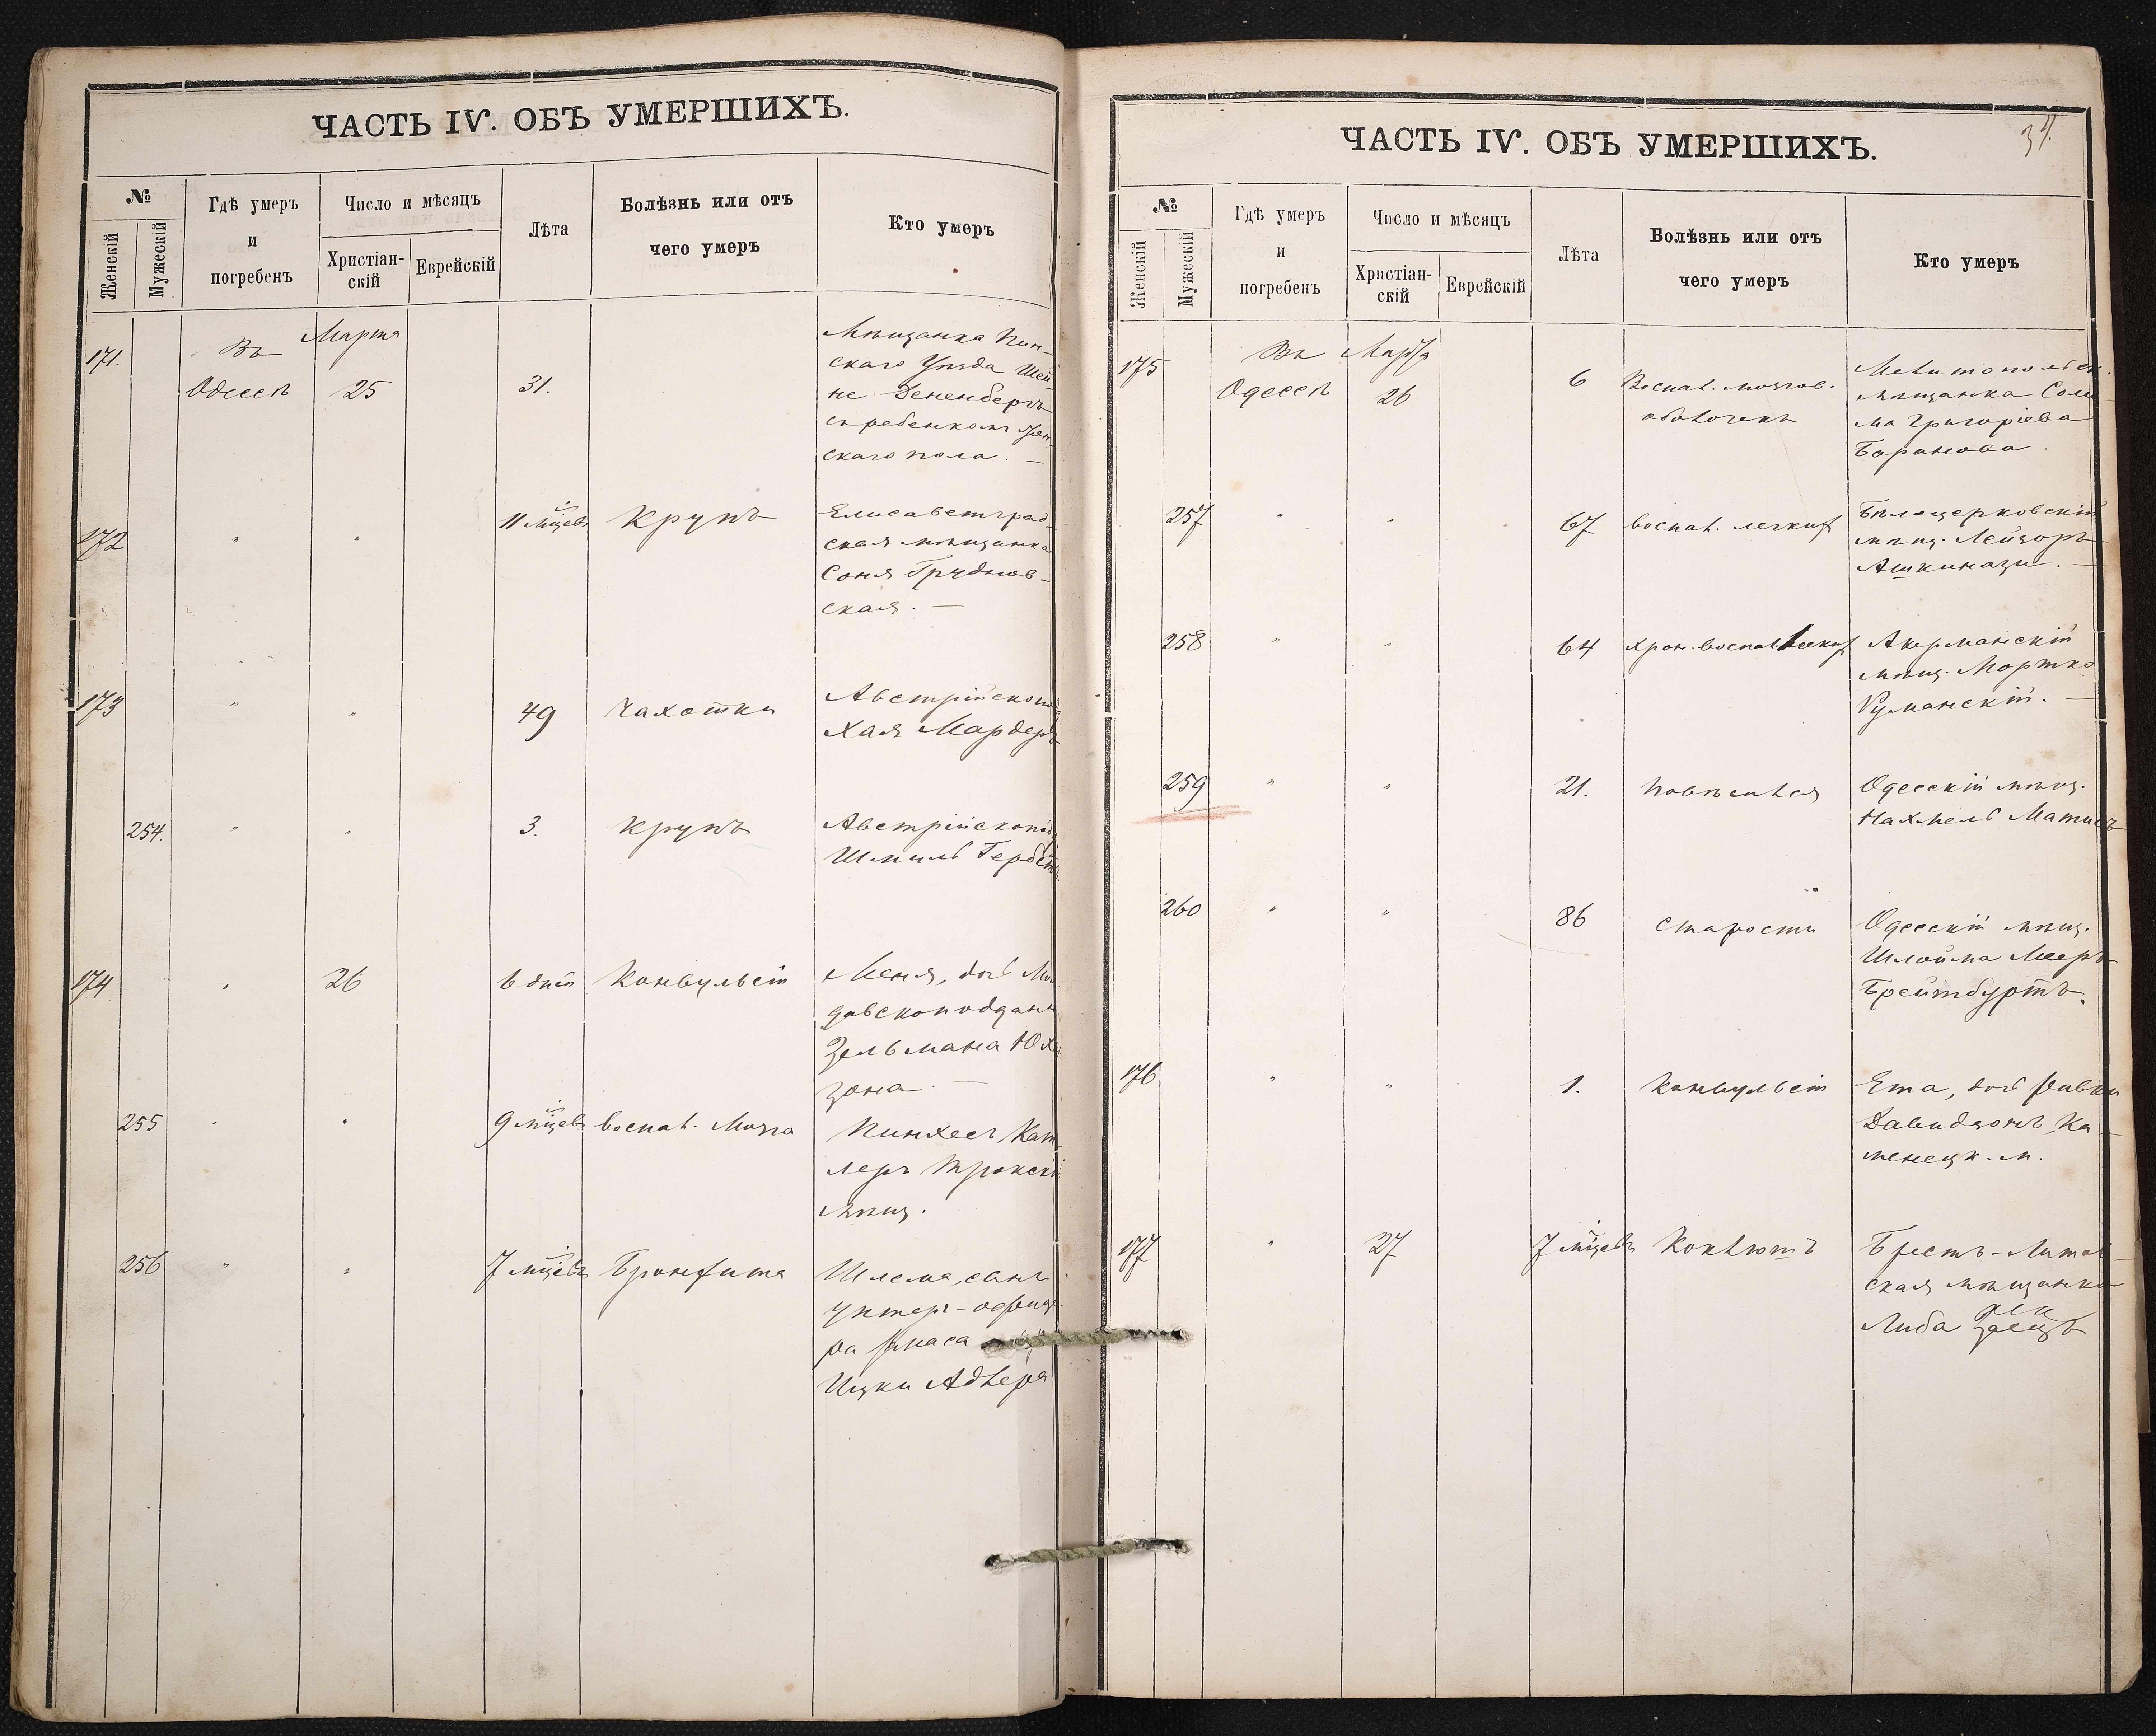 ЧАСТЬ IV. ОБЪ УМЕРШИХЪ.
№
Женскій
Мужескій
Гдѣ умеръ
и
погребенъ
Число и мѣсяцъ
Христіан-
скій
Еврейскій
Лѣта
Болѣзнь или отъ
чего умеръ
Кто умеръ
171.
Въ
Одессѣ
Марта
25
31.
Мѣщанка Пин-
скаго Уѣзда Шей-
не Дененберъ
съ ребенкомъ жен-
скаго пола. —
172
"
"
11 мѣсцевъ
Крупъ
Елисаветград-
ская мѣщанка
Соня Грудков-
ская. —
173
"
"
49
Чахотки
Австрійскопод
Хая Мардеръ
254.
"
"
3.
Крупъ
Австрійскопод
Шмиль Гербст
174
"
26
6 дней
Конвульсій
Меня, дочь Мол
давскоподдан
Зельмана Юх
зона. —
255
"
"
9 мѣсцевъ
воспал. мозга
Пинхесъ Кат
леръ Трокскій
мѣщ.
256
"
"
7 мѣсцевъ
Бронхита
Шлема, сынъ
унтеръ-офице
ра запаса
Ицки Адлера
ЧАСТЬ IV. ОБЪ УМЕРШИХЪ.
34.
№
Женскій
Мужескій
Гдѣ умеръ
и
погребенъ
Число и мѣсяцъ
Христіан-
скій
Еврейскій
Лѣта
Болѣзнь или отъ
чего умеръ
Кто умеръ
175
Въ
Одессѣ
Марта
26
6
Воспал. мозгов.
оболочекъ
Мелитопольск.
мѣщанка Соли
ма Григорiева
Баранова.
257
"
"
67
воспал. легкихъ
Бѣлоцерковскій
мѣщ. Лейзоръ
Ашкинази. —
258
"
"
64
хрон. воспал легких
Акерманскій
мѣщ. Мортко
Уманскій. —
259
"
"
21.
повѣсился
Одесскій мѣщ.
Нахмель Матись
260
"
"
86
старости
Одесскій мѣщ.
Шлойма Мееръ
Брейтбуртъ.
176
"
"
1.
Конвульсій
Ета, дочь Ривки
Давидзонъ, Ка-
менецк. м.
177
"
27
7 мѣсцевъ
Коклютъ
Брестъ-Литов-
ская мѣщанка
Либа Заецъ